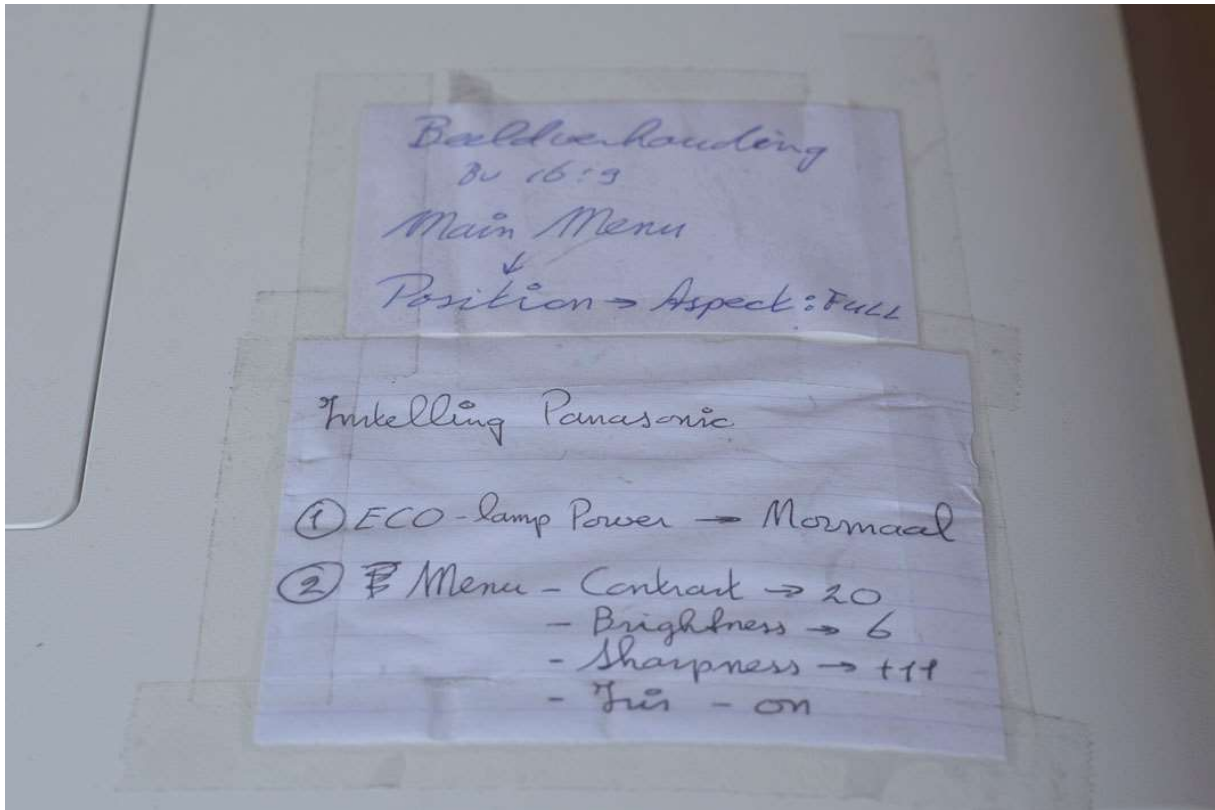 Beeldverhouding
BV 16:9
Main Menu
↓
Position → Aspect: FULL
Instelling Panasonic
① ECO-lamp Power → Normaal
② Menu - Contrast → 20
- Brightness → 6
- Sharpness → +11
- Iris - on